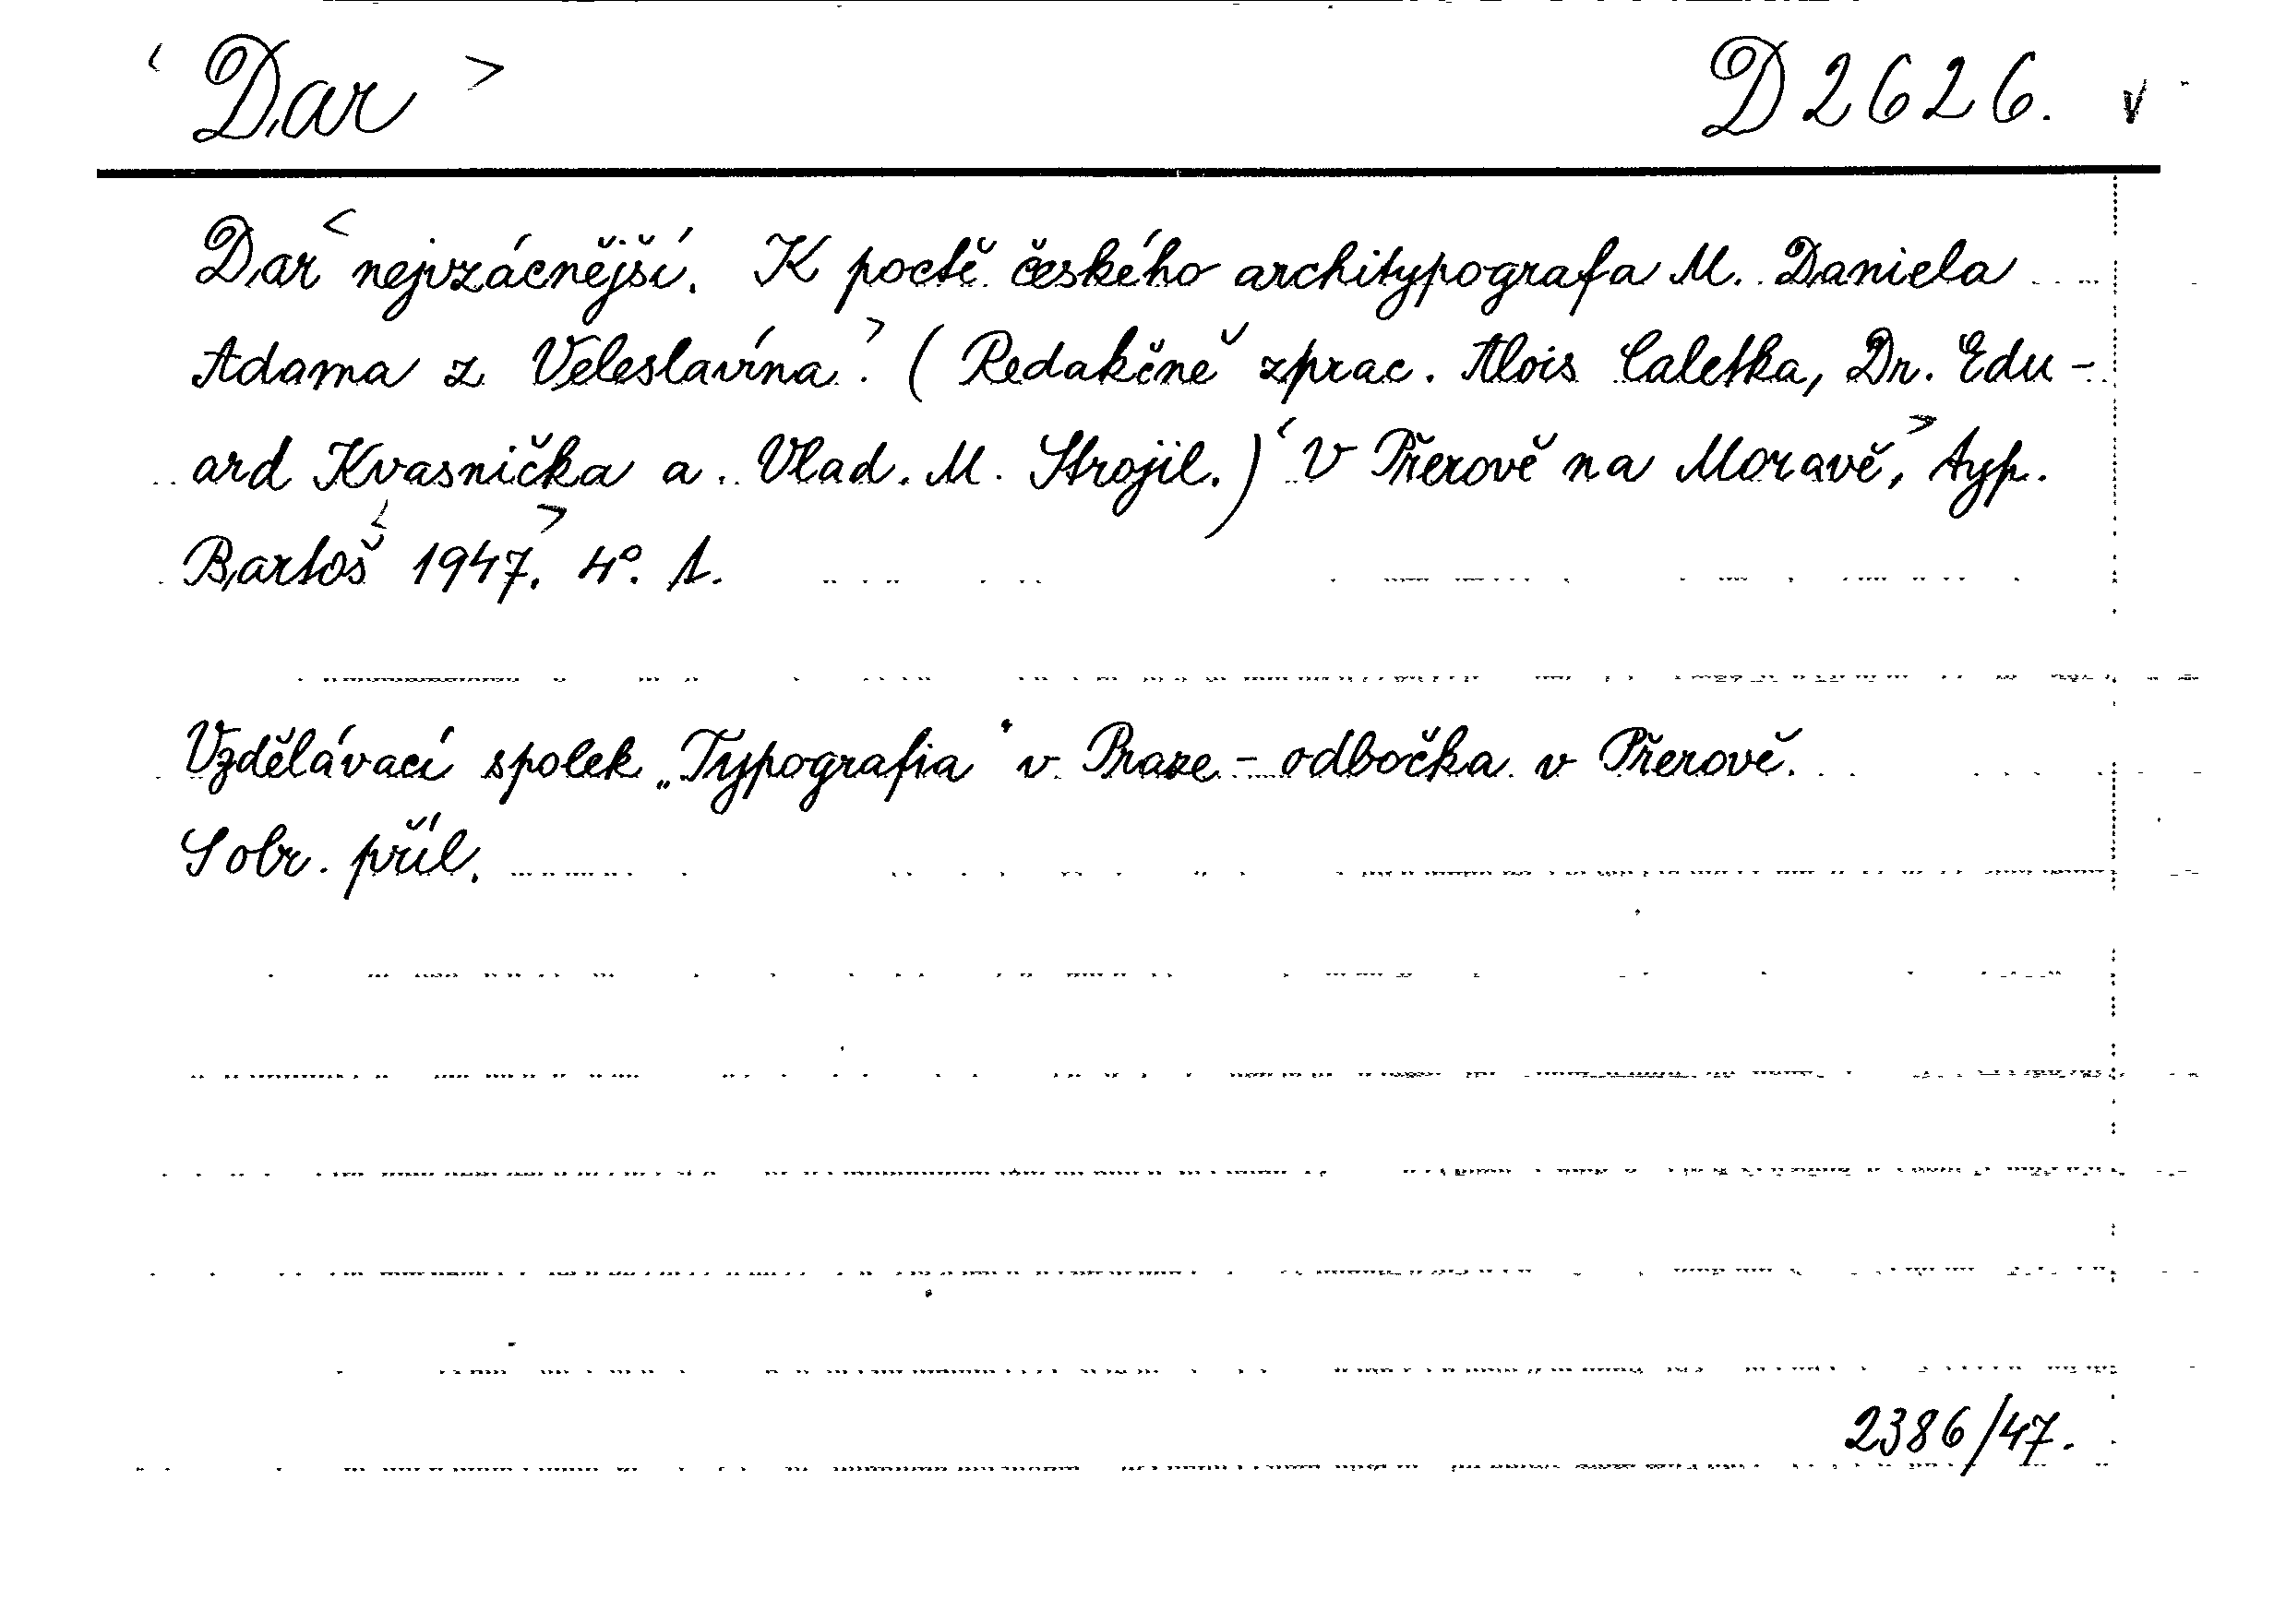 ‹ Dar › D 2626. v
Dar ‹ nejvzácnější. K poctě českého architypografa M. Daniela
Adama z Veleslavína. › (Redakčně zprac. Alois Caletka, Dr. Edu-
ard Kvasnička a Vlad. M. Strojil.) ‹ V Přerově na Moravě, › typ.
Bartoš ‹ 1947. › 4°. 1.
Vzdělávací spolek „Typografia" v Praze - odbočka v Přerově.
S obr. příl.
2386/47.